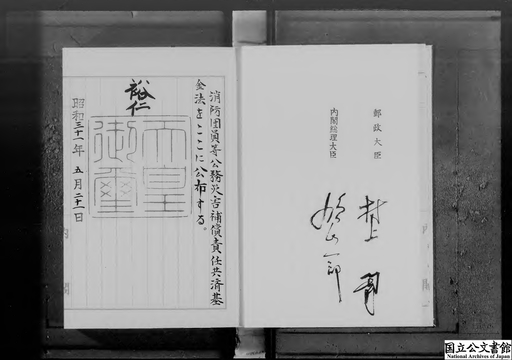 郵政大臣
村上勇
内閣総理大臣
鳩山一郎
消防団員等公務災害補償責任共済基
金法をここに公布する。
裕仁
天皇
御璽
昭和三十一年五月二十一日
国立公文書館
National Archives of Japan